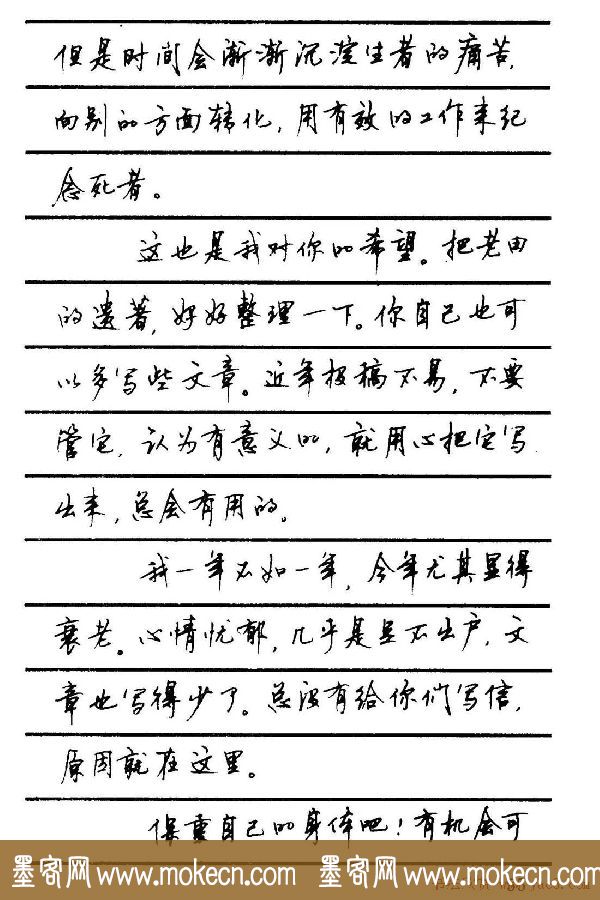 但是时间会渐渐沉淀生者的痛苦，
向别的方面转化，用有效的工作来纪
念死者。
这也是我对你的希望。把老田
的遗著，好好整理一下。你自己也可
以多写些文章。近年报稿不易，不要
管它，认为有意义的，就用心把它写
出来，总会有用的。
我一年不如一年，今年尤其显得
衰老。心情忧郁，几乎是足不出户，文
章也写得少了。总没有给你们写信，
原因就在这里。
保重自己的身体吧！有机会可
墨客网 www.mokecn.com 墨客网 www.mokecn.com